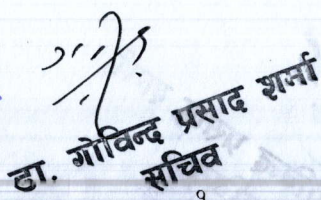 डा. गोविन्द प्रसाद शर्मा
सचिव
१